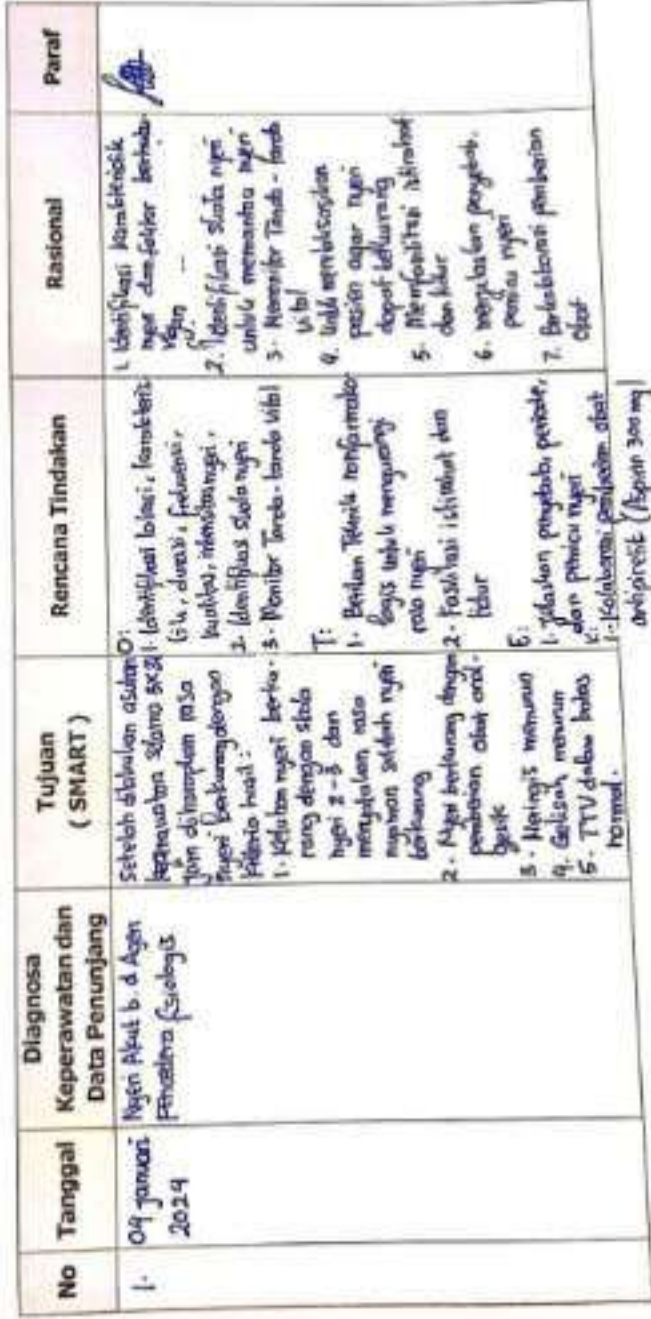 No
Tanggal
Diagnosa
Keperawatan dan
Data Penunjang
Tujuan
( SMART )
Rencana Tindakan
Rasional
Paraf
1.
09 januari
2024
Nyeri Akut b.d Agen
Pencedera fisiologis
Setelah dilakukan asuhan
keperawatan selama 3x24
jam diharapkan rasa
Nyeri berkurang dengan
kriteria hasil :
1. Keluhan nyeri berku-
rang dengan skala
nyeri 2-3 dan
menyatakan rasa
nyaman setelah nyeri
berkurang
2. Nyeri berkurang dengan
pemberian obat anal-
gesik
3. Meringis menurun
4. Gelisah menurun
5. TTV dalam batas
normal.
O:
1. Identifikasi lokasi, karakteris-
tik, durasi, frekuensi,
kualitas, intensitas nyeri,
2. Identifikasi skala nyeri
3. Monitor Tanda-tanda vital
T:
1. Berikan Teknik nonfarmako
logis untuk mengurangi
rasa nyeri
2. Fasilitasi istirahat dan
tidur
E:
1. Jelaskan penyebab, periode,
dan pemicu nyeri
K:
1. Kolaborasi pemberian obat
antipiretik (Aspirin 300 mg)
1. Identifikasi karakteristik
nyeri dan faktor berhubu-
2. Identifikasi skala nyeri
untuk memantau nyeri
3. Memonitor Tanda-tanda
vital
4. Untuk
pasien agar nyeri
dapat berkurang
5. Memfasilitasi istirahat
dan tidur
6. menjelaskan penyebab,
pemicu nyeri
7. Berkolaborasi pemberian
obat